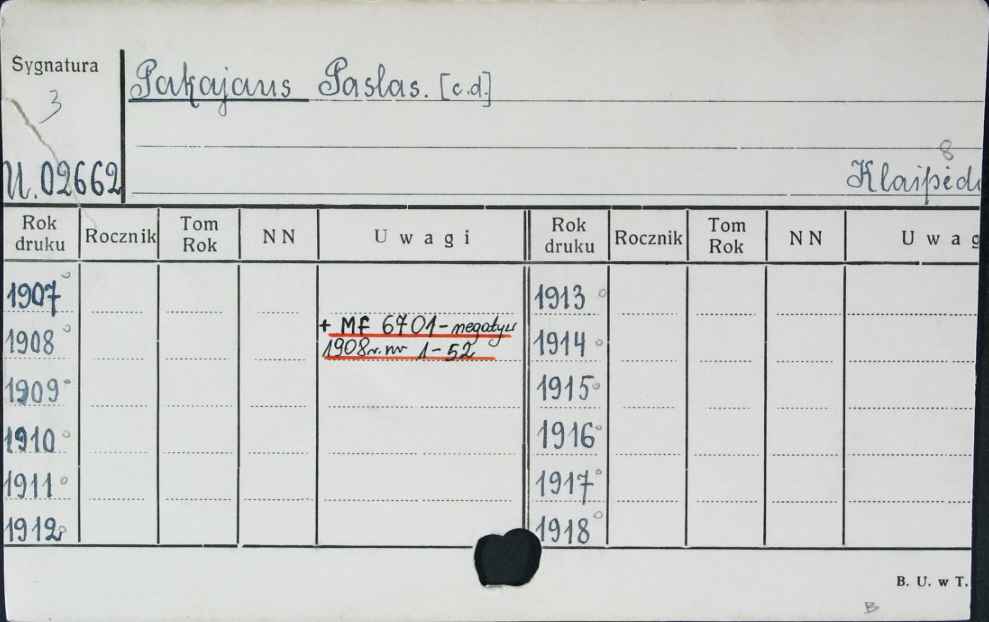 Sygnatura
3
Pakajaus Paslas. [c.d.]
8
U.02662
Klaipėd
Rok druku Rocznik Tom Rok NN Uwagi Rok druku Rocznik Tom Rok NN Uwag
1907 1913
+ MF 6701-negatyw
1908 1914
1908r. nr 1-52
1909 1915
1910 1916
1911 1917
1912 1918
B. U. w T.
B